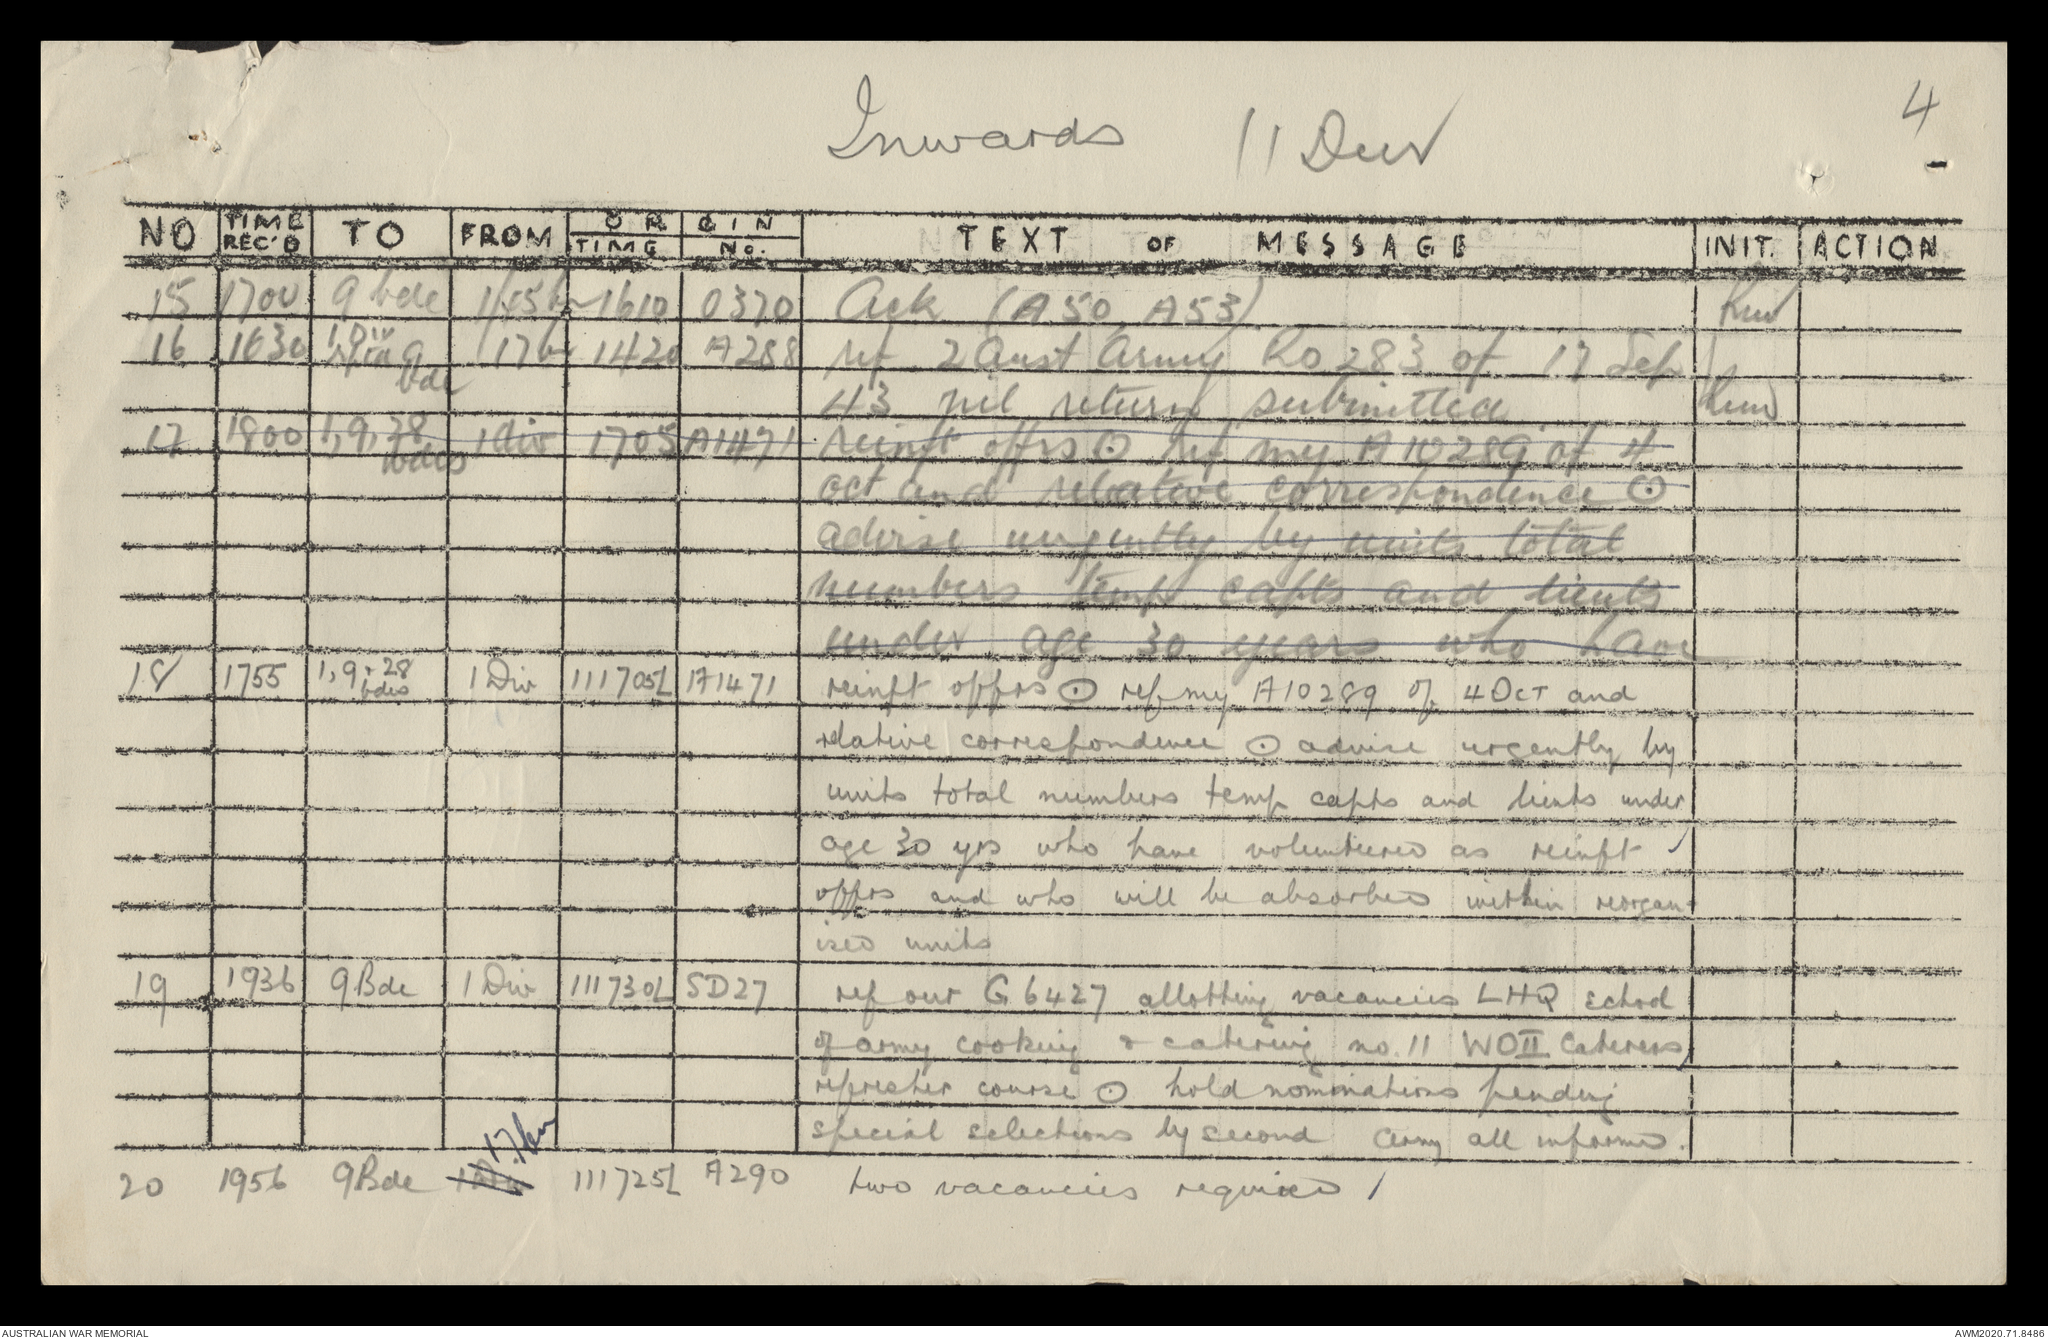 4
Inwards 11 Dec
NO TIME REC'D TO FROM ORIGIN TIME No. TEXT OF MESSAGE INIT. ACTION
15 1700 9 bde 1/45 bn 1610 0370 Ack (A50 A53)
16 1630 1 Div 9 bde 17 bn 1420 A288 ref 2 Aust Army RO 283 of 17 Sep
43 nil return submitted
17 1800 1, 9, 28 bdes 1 div 1705 A1471 reinft offrs ⊙ ref my A10289 of 4
oct and relative correspondence ⊙
advise urgently by units total
numbers temp capts and lieuts
under age 30 years who have
18 1755 1, 9 + 28 bdes 1 Div 111705L A1471 reinft offrs ⊙ ref my A10289 of 4 OCT and
relative correspondence ⊙ advise urgently by
units total numbers temp capts and lieuts under
age 30 yrs who have volunteered as reinft
offrs and who will be absorbed within reorgan-
ised units
19 1936 9 Bde 1 Div 111730L SD27 ref our G6427 allotting vacancies LHQ school
of army cooking & catering no. 11 WOII Caterers
refresher course ⊙ hold nominations pending
special selections by second army all informed.
20 1956 9 Bde 1 Div 17 bn 111725L A290 two vacancies required
AUSTRALIAN WAR MEMORIAL AWM2020.71.8486